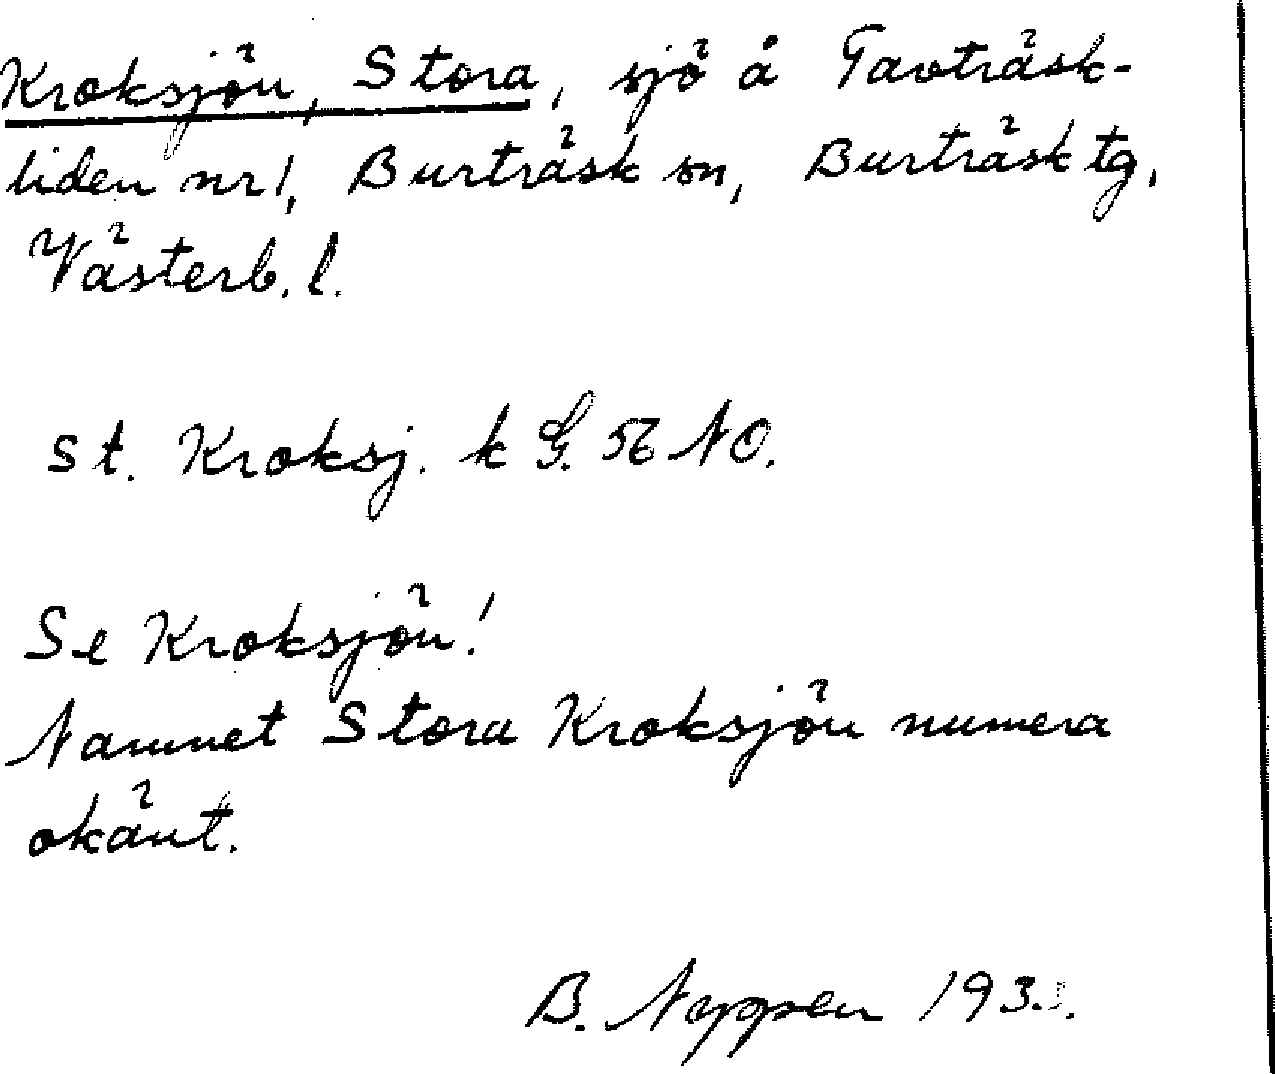 Kroksjön, Stora, sjö å Tavträsk-
liden nr 1, Burträsk sn, Burträsk tg,
Västerb. l.
St. Kroksj. k G. 56 NO.
Se Kroksjön!
Namnet Stora Kroksjön numera
okänt.
B. Nyppen